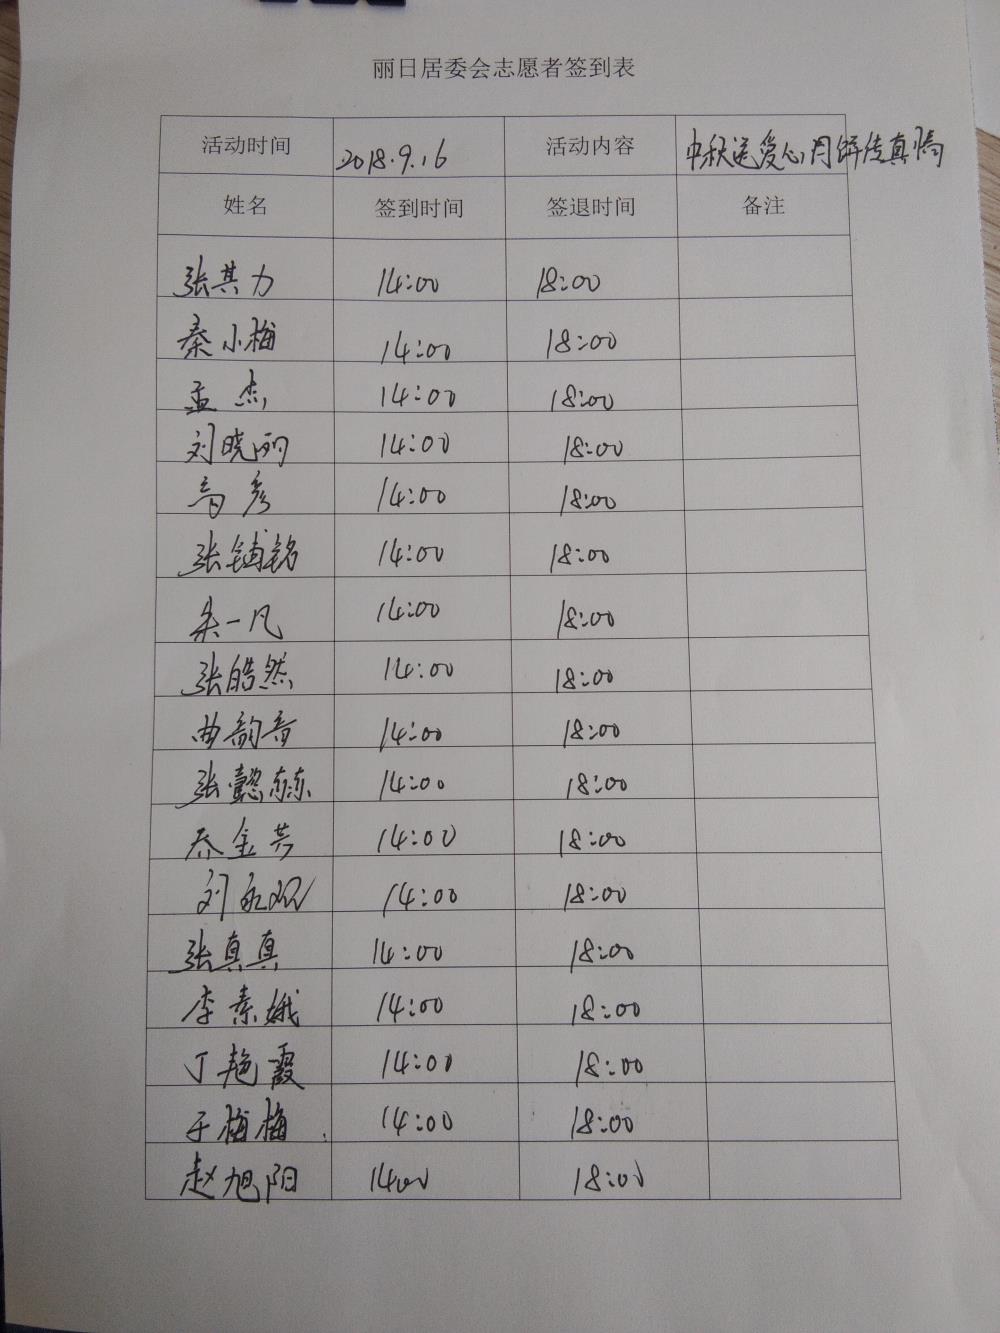 丽日居委会志愿者签到表
活动时间 2018.9.16 活动内容 中秋送爱心月饼传真情
姓名 签到时间 签退时间 备注
张其力 14:00 18:00
秦小梅 14:00 18:00
孟杰 14:00 18:00
刘晓丽 14:00 18:00
高彦 14:00 18:00
张铺铭 14:00 18:00
朱一凡 14:00 18:00
张皓然 14:00 18:00
曲韵音 14:00 18:00
张懿赫 14:00 18:00
乔金芸 14:00 18:00
刘永观 14:00 18:00
张真真 14:00 18:00
李素娥 14:00 18:00
丁艳霞 14:00 18:00
于梅梅 14:00 18:00
赵旭阳 1400 18:00